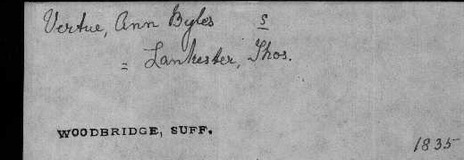 Vertue, Ann Byles s
= Lankester, Thos.
WOODBRIDGE, SUFF.
1835